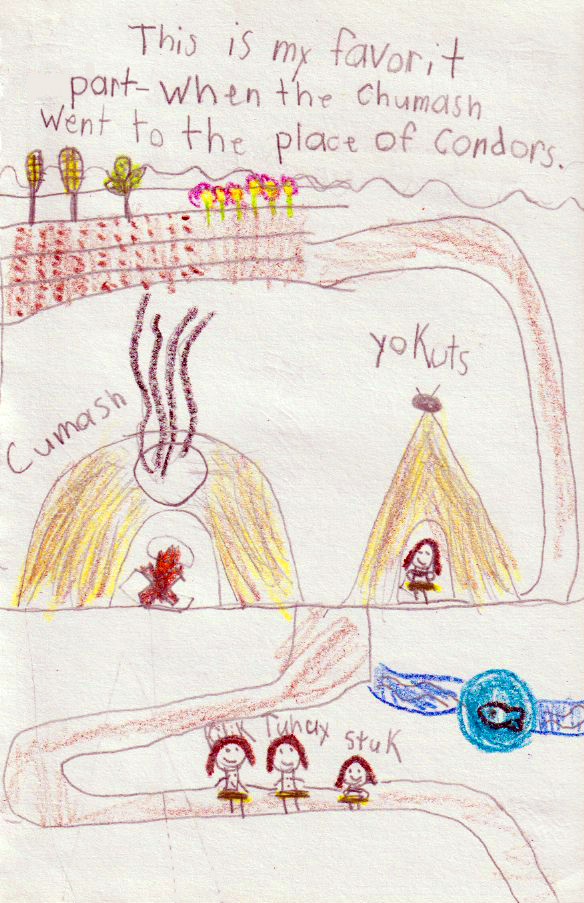 This is my favorit
part-when the Chumash
went to the place of Condors.
yokuts
Cumash
Tuhux stuk